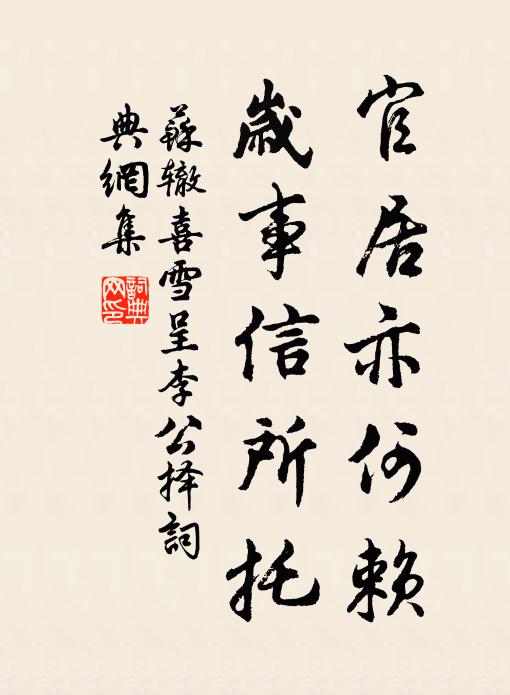 官居亦何赖
歲事信所托
蘇辙喜雪呈李公择詞
典網集
詞典网印